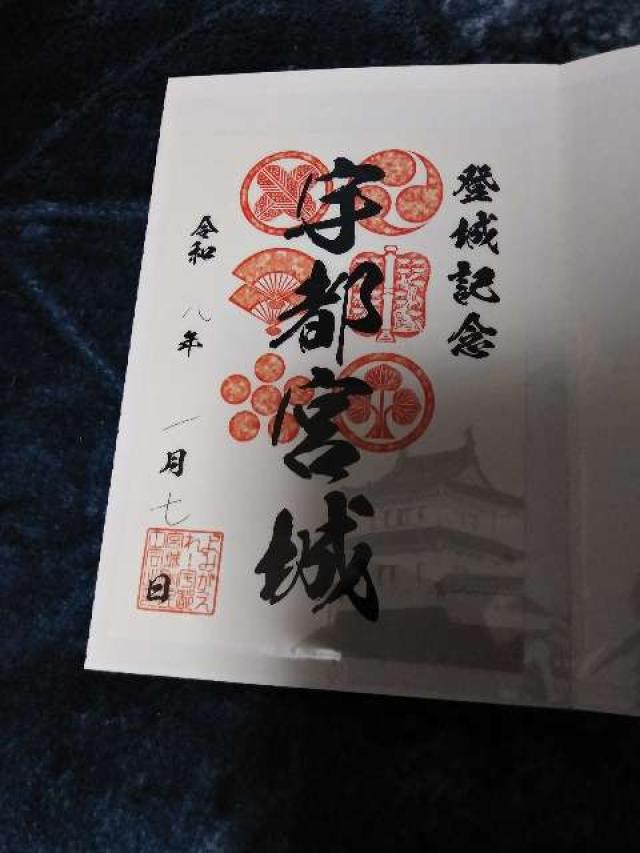 登城記念
宇都宮城
令和八年一月七日
よみがえ
れ!宇都
宮城